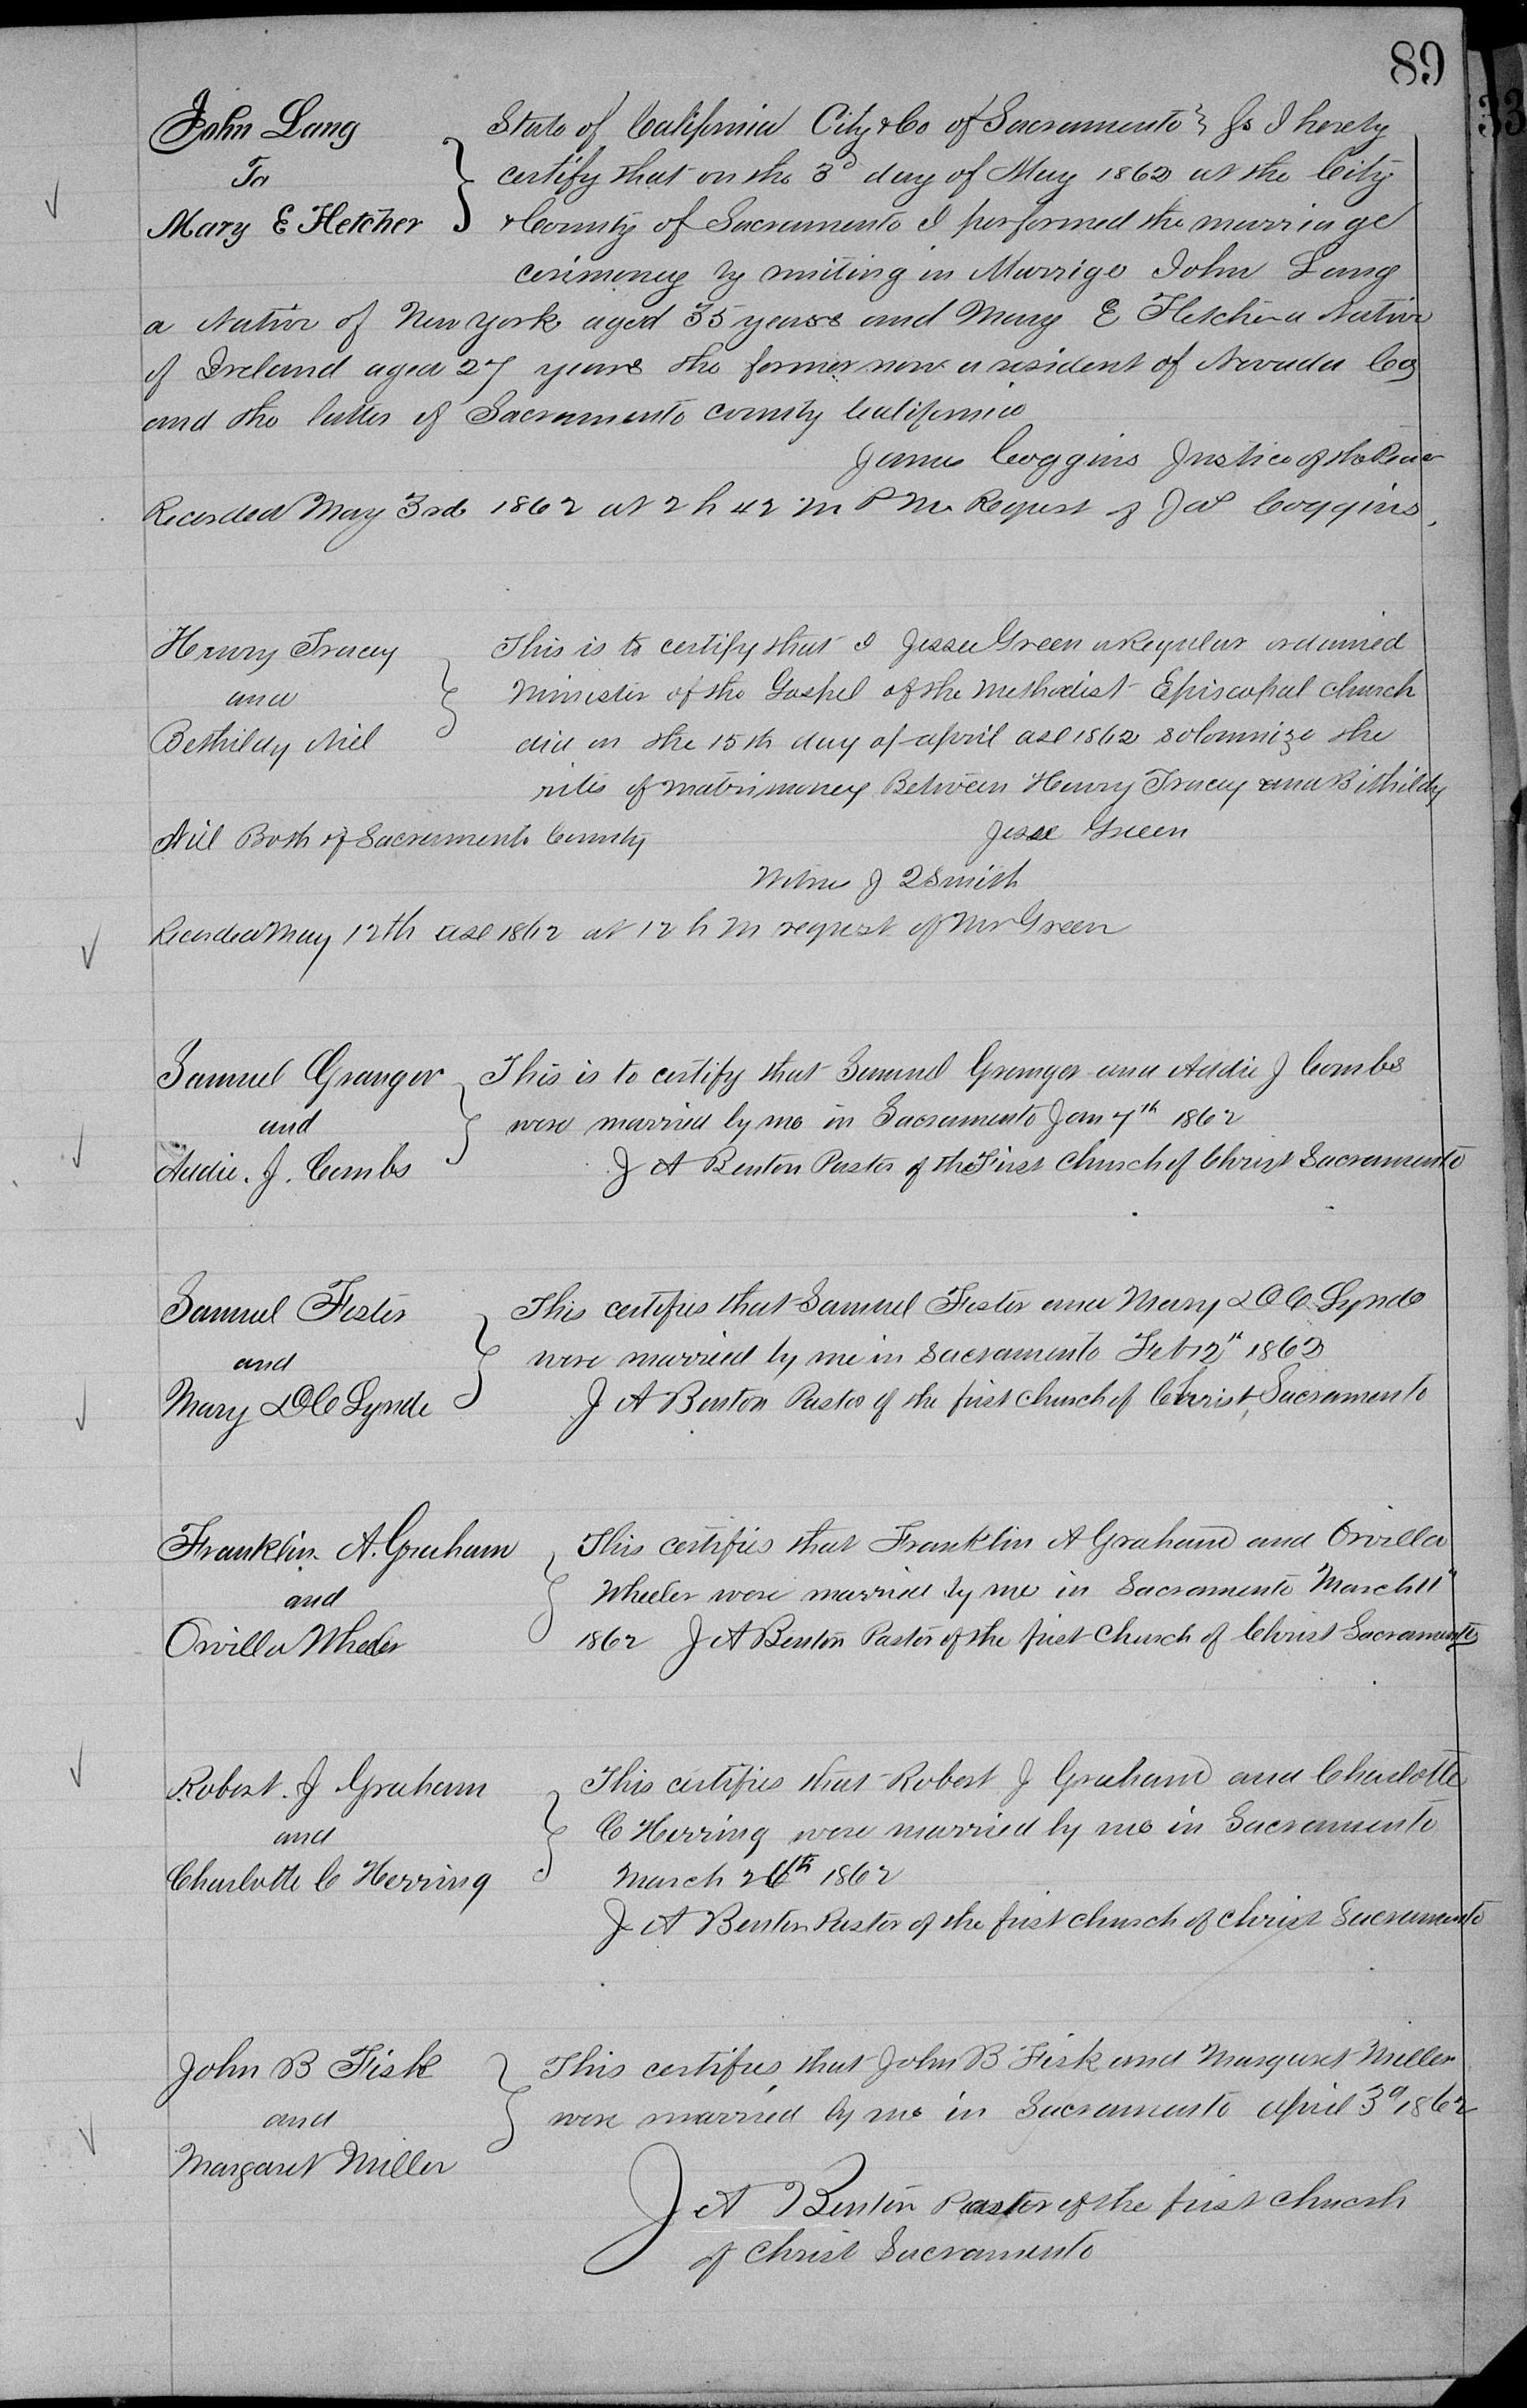 89
John Lang
To
Mary E Fletcher
State of California City & Co of Sacramento } ss I hereby
certify that on the 3d day of May 1862 at the City
& County of Sacramento I performed the marriage
cerimoney by uniting in Marrige John Lang
a Native of New York aged 35 years and Mary E Fletcher a Native
of Ireland aged 27 years the former now a resident of Nevada Co
and the latter of Sacramento county California
James Coggins Justice of the Peace
Recorded May 3rd 1862 at 2 h 42 m P M Request of Jas Coggins
Henry Tracey
and
Bethildy Niel
This is to certify that I Jessee Green a Regular ordained
Minister of the Gospel of the Methodist Episcopal church
did on the 15th day of april 1862 solomnize the
rites of matrimoney Between Henry Tracey and Bithildy
Niel Both of Sacramento County Jesse Green
Witness J Q Smith
Recorded May 12th 1862 at 12 h M request of Mr Green
Samuel Granger
and
Addie. J. Combs
This is to certify that Samuel Granger and Addie J Combs
were married by me in Sacramento Jan 7th 1862
J A Benton Pastor of the First Church of Christ Sacramento
Samuel Fester
and
Mary Lynde
This certifies that Samuel Fester and Mary Lynde
were married by me in Sacramento Feb 12" 1862
J A Benton Pastor of the first Church of Christ Sacramento
Franklin A. Graham
and
Orvilla Wheeler
This certifies that Franklin A Graham and Orvilla
Wheeler were married by me in Sacramento March 11"
1862 J A Benton Pastor of the first Church of Christ Sacramento
Robert. J Graham
and
Charlotte C Herring
This certifies that Robert J Graham and Charlotte
C Herring were married by me in Sacramento
March 26th 1862
J A Benton Pastor of the first church of Christ Sacramento
John B Fisk
and
Margaret Miller
This certifies that John B Fisk and Margaret Miller
were married by me in Sacramento april 3d 1862
J A Benton Pastor of the first church
of Christ Sacramento